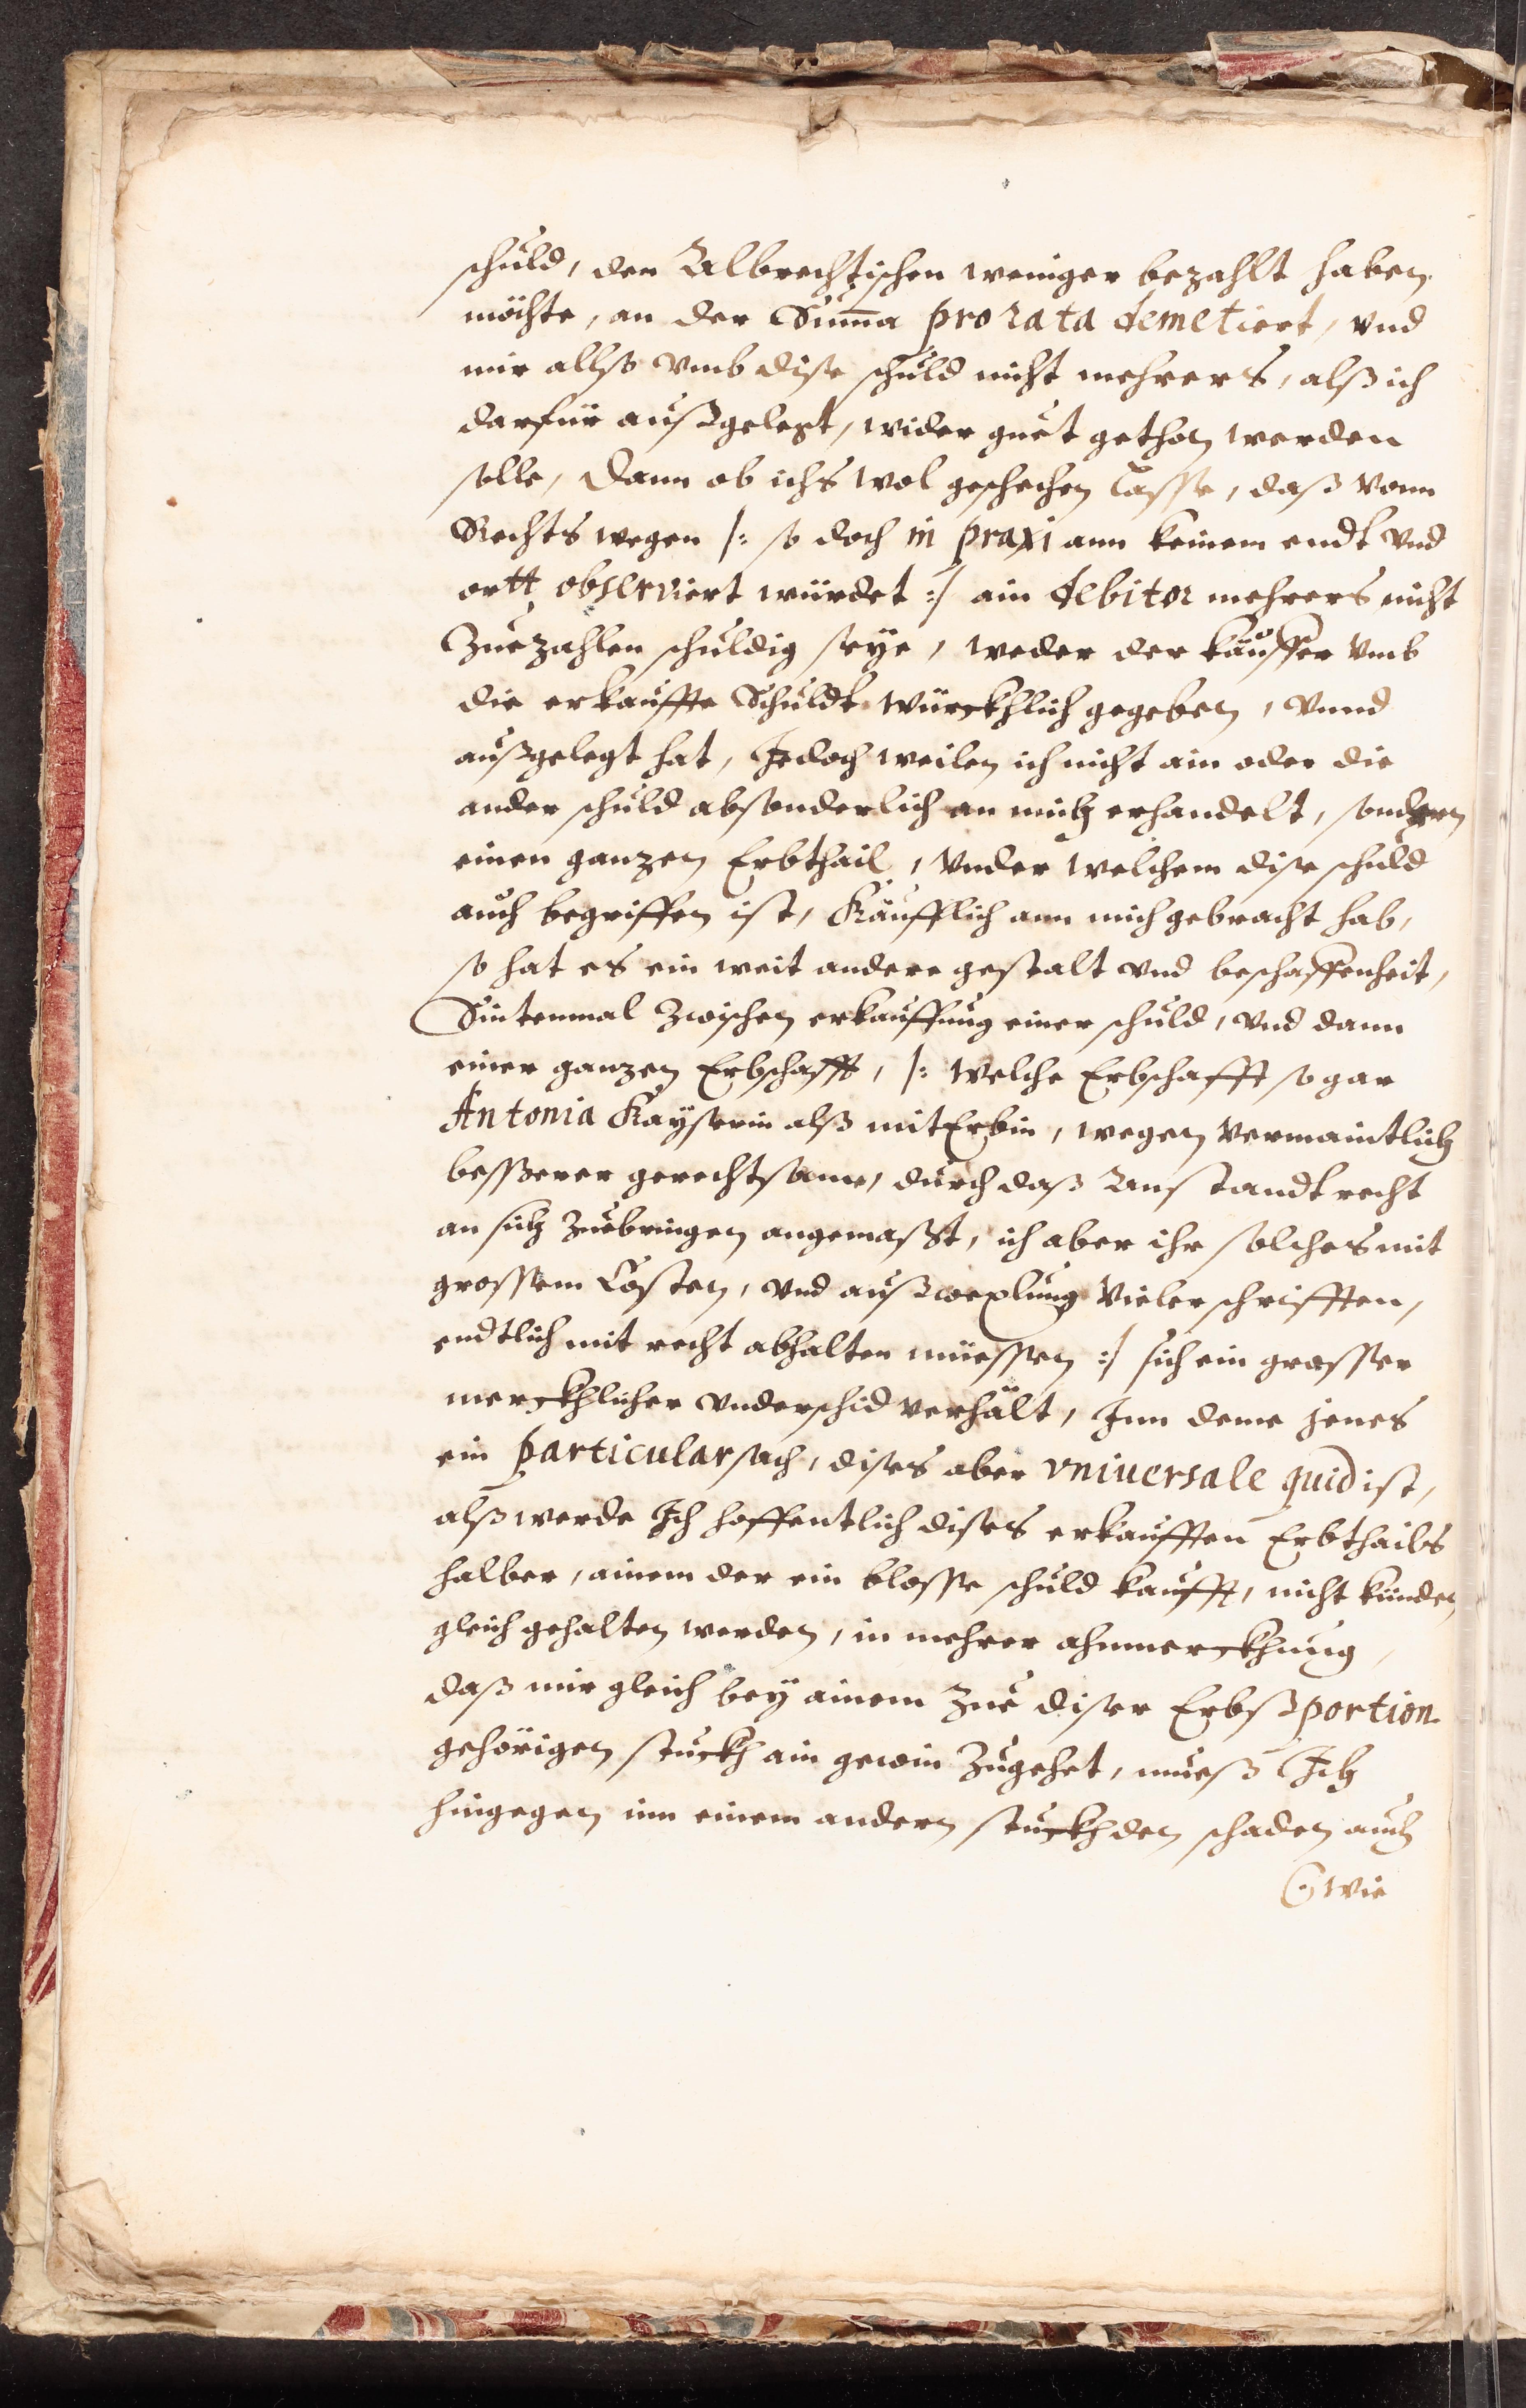 schuld, den Albrechtischen weniger bezahlt haben
möchte, an der Sum̄a pro rata demetiert, vnd
mir allso vmb dise schuld nicht mehrers, alß ich
darfür außgelegt, wider guet gethon werden
solle, Dann ob ichs wol geschechen lasse, daß vonn
Rechts wegen /: so doch in praxi ann keinem endt vnd
ortt observiert würdet :/ ain debitor mehrers nicht
Zuezahlen schuldig seye, weder der kauffer vmb
die erkauffte Schuldt würckhlich gegeben, vnnd
außgelegt hat, Jedoch weilen ich nicht ain oder die
ander schuld absonderlich an mich erhandelt, sondern
einen ganzen Erbthail, vnder welchem dise schuld
auch begriffen ist, Käufflich ann mich gebracht hab,
so hat es ein weit andere gestalt vnd beschaffenheit,
Sintenmal Zwischen erkauffung einer schuld, vnd dann
einer ganzen Erbschafft, /: welche Erbschafft so gar
Antonia Kayserin alß mitErbin, wegen vermaintlich
besserer gerechtsame, durch daß Anstandtrecht
an sich Zuebringen angemaßt, ich aber ihr solches mit
grossem Costen, vnd außwexlung viler schrifften,
endtlich mit recht abhalten müessen :/ sich ein grosser
merckhlicher vnderschid verhält, Inn deme jenes
ein particular sach, dises aber vniversale quid ist,
alß werde Ich hoffentlich dises erkaufften Erbthails
halber, ainem der ein blosse schuld kaufft, nicht künden
gleich gehalten werden, in mehrer ahnmerckhung,
daß mir gleich bey ainem Zue diser Erbßportion
gehörigen stuckh ain gewin Zugehet, mueß Ich
hingegen inn einem andern stuckh den schaden auch
wie